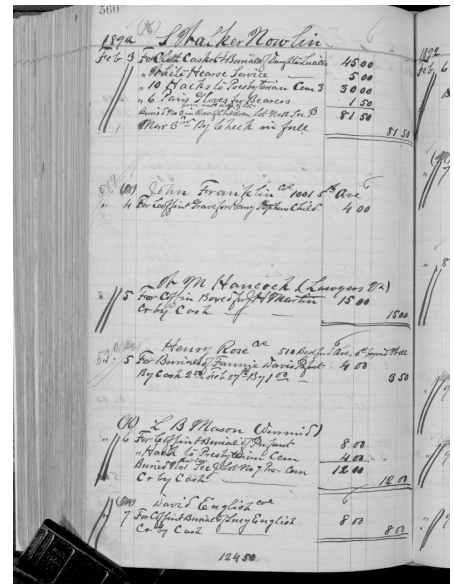 560
1892 S Walker Nowlin
Feb 3 For Cloth Casket & Burial of Daughter 45 00
" White Hearse Service 5 00
" 10 Hacks to Presbyterian Cem 3 30 00
" 6 Pairs Gloves for Bearers 1 50
Buried No 6 in Row of Children Lot No 81 50
Mar 3rd By Check in full 81 50
John Franklin col 1001 5th Ave
" 4 For Coffin & Grave for Henry Child 4 00
M Hancock (Lawyers Va)
" 5 For Coffin Boxed for J H Martin 15 00
Cr by Cash 15 00
Henry Rose col 510 Bedford Ave
5 For Burial of Fannie Davis Infant 4 00
By Cash 2 50 Feb 27th By 1 00 3 50
L B Mason
" 6 For Coffin & Burial of Infant 8 00
" Hack to Presbyterian Cem 4 00
Buried Lot No 7 Pres Cem 12 00
Cr by Cash 12 00
David English col
7 For Coffin & Burial of Lucy English 8 00
Cr by Cash 8 00
124 50
1892
Feb 6